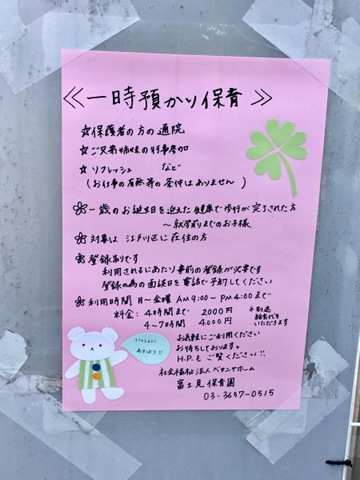 ≪一時預かり保育≫
☆保護者の方の通院
☆ご兄弟姉妹の行事参加
☆リフレッシュ など
(お仕事の有無等の条件はありません)
一歳のお誕生日を迎えた健康で歩行が完了された方
～就学前までのお子様
対象は 江戸川区に在住の方
登録制です
利用されるにあたり事前の登録が必要です
登録の為の面談日を電話で予約してください
利用時間 月～金曜 AM9:00~PM4:00まで
料金: 4時間まで 2000円
4~7時間 4,000円
※別途
給食代等
いただきます
お気軽にご利用ください
お待ちしております。
H.P.も ご覧ください!!
いっしょに
あそぼう!!
社会福祉法人ベタニヤホーム
富士見保育園
03-3657-0515